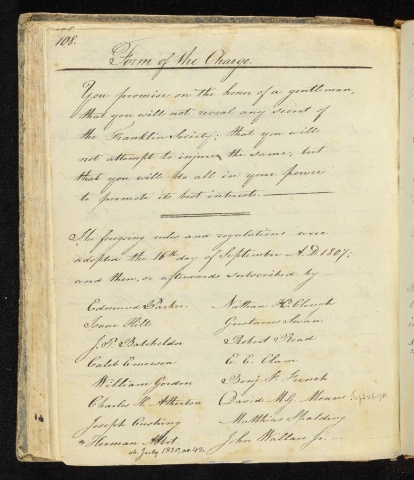 108.
Form of the Charge.
You promise on the honor of a gentleman,
that you will not reveal any secret of
the Franklin Society; that you will
not attempt to injure the same; but
that you will do all in your power
to promote its best interest.
The foregoing rules and regulations were
adopted the 16th day of September A.D. 1807;
and then, or afterwards subscribed by
Edmund Parker Nathan K. Clough
Isaac Hill Gustavus Swan
J. P. Batchelder Robert Read
Caleb Emerson E. E.
William Gordon Benj. F. French
Charles H. Atherton David McG. Means
Joseph Cushing Matthias Spalding
Herman Abbot John Wallace Jr.
ob. July 1830, ae. 42.